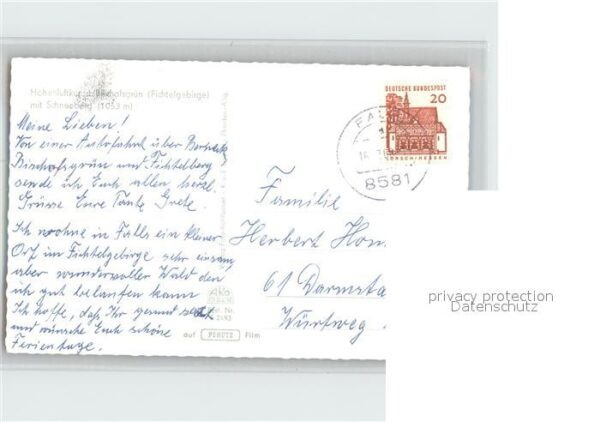 Höhenluftkurort Bischofsgrün (Fichtelgebirge)
mit Schneeberg (1053 m)
Meine Lieben!
Von einer Autofahrt über
Bischofsgrün und Fichtelberg
sende ich Euch allen herzl.
Grüsse Eure Tante Grete.
Ich wohne in Falls ein kleiner
Ort im Fichtelgebirge sehr einsam
aber wundervoller Wald den
ich gut belaufen kann
Ich hoffe, daß Ihr gesund seid
und wünsche Euch schöne
Ferientage.
auf PERUTZ Film
DEUTSCHE BUNDESPOST
20
LORSCH/HESSEN
8581
Familie
Herbert
61 Darmsta
Würtweg
privacy protection
Datenschutz